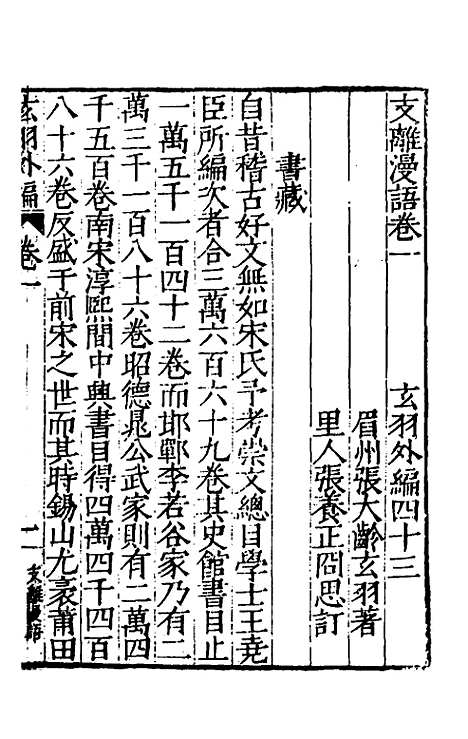 支離漫語卷一　　　玄羽外編四十三
眉州張大齡玄羽著
里人張養正冏思訂
書藏
自昔稽古好文無如宋氏予考崇文總目學士王堯
臣所編次者合三萬六百六十九卷其史館書目止
一萬五千一百四十二卷而邯鄲李若谷家乃有二
萬三千一百八十六卷昭德晁公武家則有二萬四
千五百卷南宋淳熙間中興書目得四萬四千四百
八十六卷反盛于前宋之世而其時錫山尤袤莆田
玄羽外編　卷一　二　支離漫語